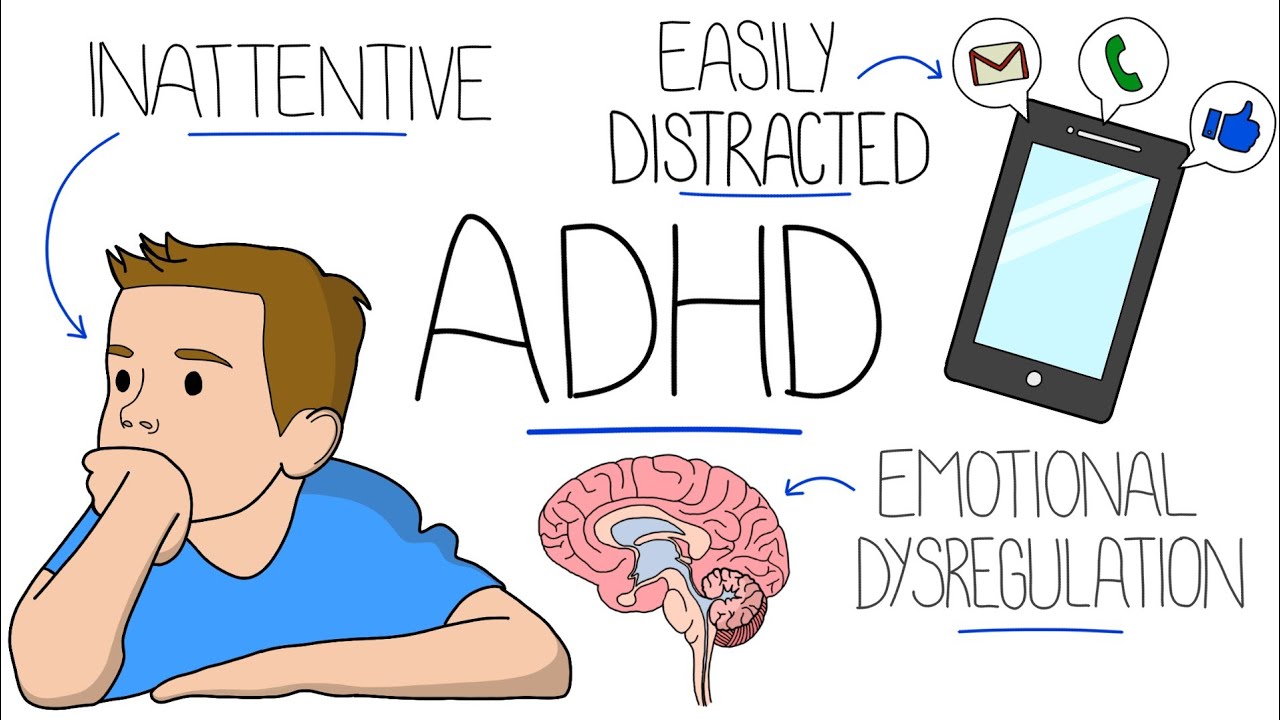 INATTENTIVE
EASILY
DISTRACTED
ADHD
EMOTIONAL
DYSREGULATION